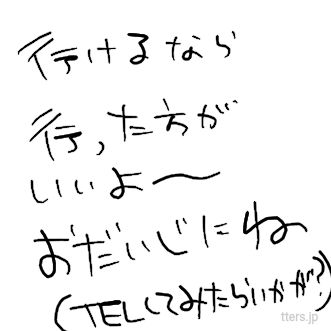 行けるなら
行った方が
いいよ〜
おだいじにね
(TELしてみたらいかが?)
tters.jp